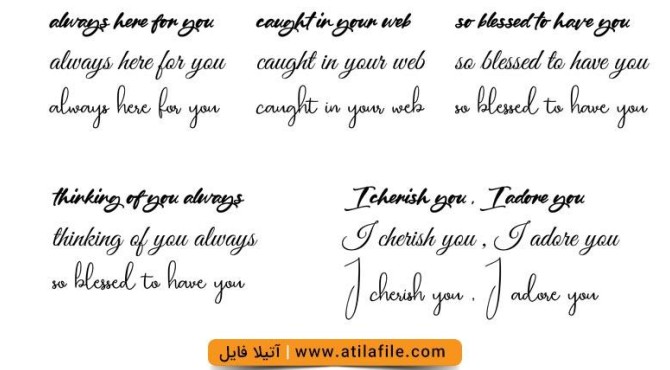 always here for you
always here for you
always here for you
caught in your web
caught in your web
caught in your web
so blessed to have you
so blessed to have you
so blessed to have you
thinking of you always
thinking of you always
so blessed to have you
I cherish you , I adore you
I cherish you , I adore you
I cherish you , I adore you
آتیلا فایل | www.atilafile.com